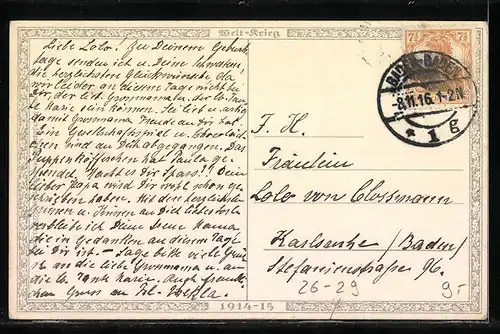 Welt-Krieg
7½ 7½
BADEN-BADEN
-8.11.16. 1-2N.
* 1 g
Liebe Lolo! Zu Deinem Geburts
tage senden ich u. Deine Schwestern
die herzlichsten Glückwünsche, da
wir leider an diesem Tage nicht bei
Dir, der lieb. Grossmama u. der lb. Tan
te Marie sein können. Sei lieb u. artig
damit Grossmama Freude an Dir hat.
Ein Gesellschaftsspiel u. Chocolad
chen sind an Dich abgegangen. Das
Puppenköfferchen hat Paula ge
spendet. Macht es Dir Spass? Dein
lieber Papa wird Dir wohl schon ge
schrieben haben. Mit den herzlichsten
Grüssen u. Küssen an Dich liebes
verbleibe ich Dein Deine Mama
die in Gedanken an diesem Tage
bei Dir ist. – Sage bitte viele Grü
sse an die liebe Grossmama u. an
die lb. Tante Marie. Auch freundli
chen Gruss an Frl.
F. H.
Fräulein
Lolo von Clossmann
Karlsruhe /Baden/
Stefanienstrasse 96.
26-29
9.-
1914-15